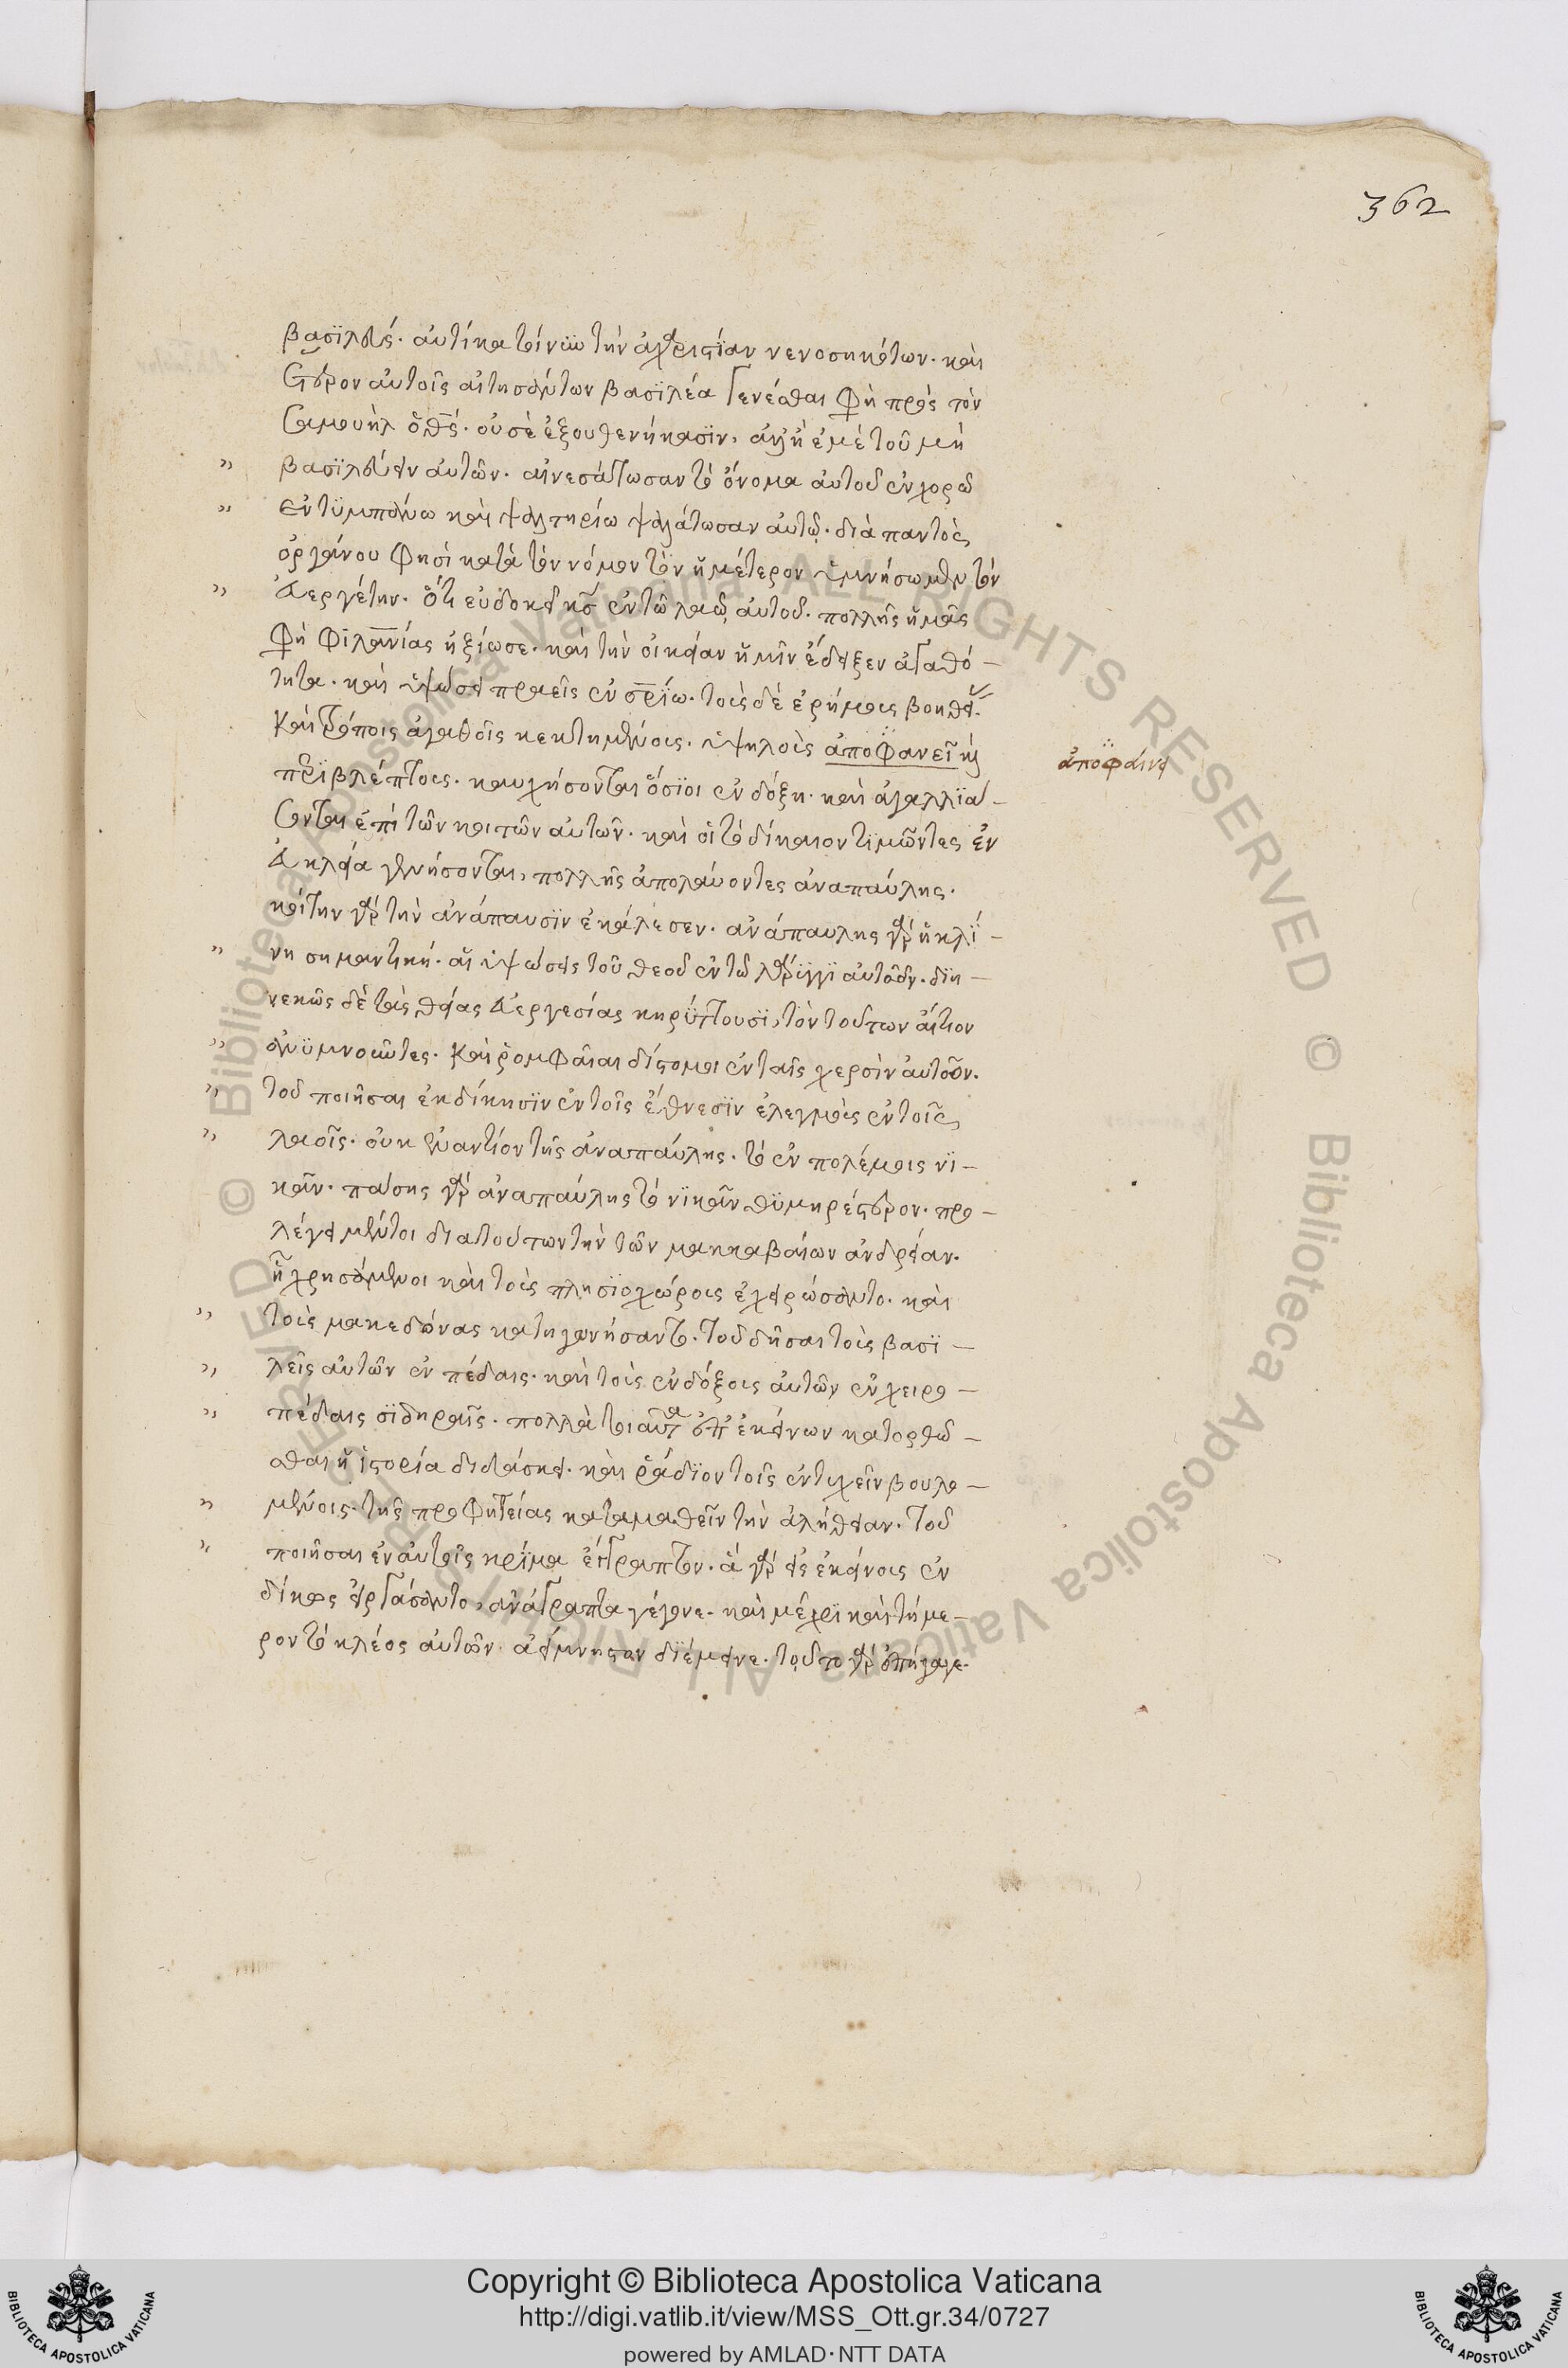 362
βασϊλεύς. αὐτίκα τοίνυν τὴν ἀχαριστίαν νενοσηκότων. καὶ
ἕτερον αὐτοῖς αἰτησάντων βασϊλέα γενέσθαι φη πρὸς τὸν
σαμουὴλ ὁ θς. οὐ σὲ ἐξουθενήκασϊν, ἀλλ' ἢ ἐμὲ τοῦ μὴ
" βασϊλεύειν αὐτῶν. αἰνεσάτωσαν τὸ ὄνομα αὐτοῦ ἐν χορῶ
" ἐν τϋμπάνω καὶ ψαλτηρίω ψαλάτωσαν αὐτῶ. διὰ παντὸς
ὀργάνου φησὶ κατὰ τὸν νόμον τὸν ἡμέτερον ὑμνήσωμεν τὸν
" εὐεργέτην. ὅτι εὐδοκεῖ κς ἐν τῶ λαῶ αὐτοῦ. πολλῆς ἡμᾶς
φη φϊλανίας ἠξίωσε. καὶ τὴν οἰκείαν ἡμῖν ἔδειξεν ἀγαθό-
τητα. καὶ ὑψώσει πραεῖς ἐν σρίω. τοὺς δὲ ἐρήμους βοηθεί.
καὶ τρόποις ἀγαθοῖς κεκτημένους. ὑψηλοὺς ἀποφανεῖ καὶ
ἀποφαίνει
περϊβλέπτους. καυχήσονται ὅσϊοι ἐν δόξη. καὶ ἀγαλλϊά-
σονται ἐπὶ τῶν κοιτῶν αὐτῶν. καὶ οἱ τὸ δίκαιον τϊμῶντες ἐν
εὐκλεία γενήσονται, πολλῆς ἀπολαύοντες ἀναπαύλης.
κοίτην γὰρ τὴν ἀνάπαυσϊν ἐκάλεσεν. ἀνάπαυλης γὰρ ἡ κλΐ-
" νη σημαντική. αἱ ὑψώσεις τοῦ θεοῦ ἐν τῶ λάρϋγγϊ αὐτῶν. δϊη-
νεκῶς δὲ τὰς θείας εὐεργεσίας κηρύττουσϊ, τὸν τούτων αἴτιον
" ἀνϋμνοῦντες. καὶ ῥομφαῖαι δίστομοι ἐν ταῖς χερσὶν αὐτῶν.
" τοῦ ποιῆσαι ἐκδίκησϊν ἐν τοῖς ἔθνεσϊν ἐλεγμοὺς ἐν τοῖς
" λαοῖς. οὐκ ἐναντίον τῆς ἀναπαύλης. τὸ ἐν πολέμοις νϊ-
κᾶν. πάσης γὰρ ἀναπαύλης τὸ νϊκᾶν θϋμηρέστερον. προ-
λέγει μέντοι διατούτων τὴν τῶν μακκαβαίων ἀνδρείαν.
ἧ χρησάμενοι καὶ τοὺς πλησϊοχώρους ἐχειρώσαντο. καὶ
" τοὺς μακεδόνας κατηγωνήσαντο. τοῦ δῆσαι τοὺς βασϊ-
" λεῖς αὐτῶν ἐν πέδαις. καὶ τοὺς ἐνδόξους αὐτῶν ἐν χειρο-
" πέδαις σϊδηραῖς. πολλὰ τοιαῦτα ὑπ' ἐκείνων κατορθῶ-
σθαι ἡ ἱστορία διδάσκει. καὶ ῥάδϊον τοῖς ἐντυχεῖν βουλο-
" μένοις. τῆς προφητείας καταμαθεῖν τὴν ἀλήθειαν. τοῦ
" ποιῆσαι ἐν αὐτοῖς κρΐμα ἔγγραπτον. ἃ γὰρ εἰς ἐκείνους ἐν
δίκως εἰργάσαντο, ἀνάγραπτα γέγονε. καὶ μέχρϊ καὶ τήμε-
ρον τὸ κλέος αὐτῶν ἀείμνηστον δϊέμεινε. τοῦτο γὰρ ἐπήγαγε.
Copyright © Biblioteca Apostolica Vaticana
http://digi.vatlib.it/view/MSS_Ott.gr.34/0727
powered by AMLAD·NTT DATA